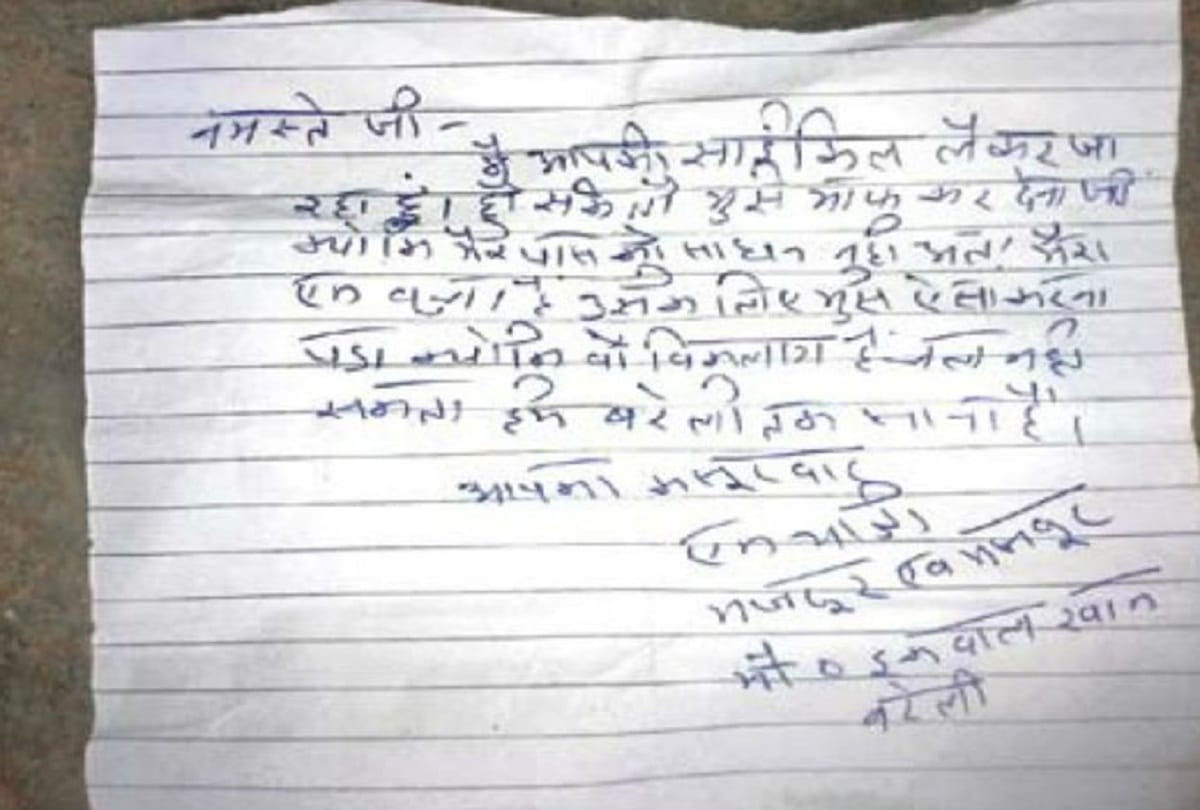 नमस्ते जी -
मै आपकी साईकिल लेकर जा
रहा हूं। हो सके तो मुझे माफ कर देना जी
क्योकि मेरे पास को साधन नही अत: मेरा
एक बच्चा है उसके लिए मुझे ऐसा करना
पडा क्योकि वो विकलांग है चल नही
सकता हमे बरेली तक जाना है।
आपका कसूरवार
एक यात्री
मजदूर एव मजबूर
मौ० इकबाल खान
बरेली